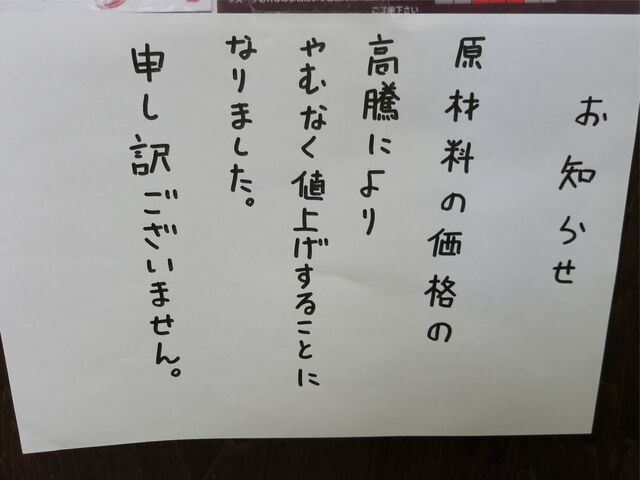 ご了承下さい
お知らせ
原材料の価格の
高騰により
やむなく値上げすることに
なりました。
申し訳ございません。